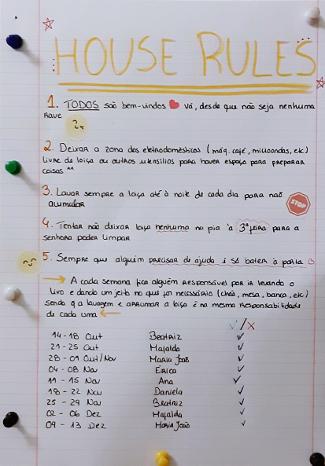 HOUSE RULES
1. TODOS são bem-vindos ❤ vá, desde que não seja nenhuma
rave
2. Deixar a zona dos eletrodomésticos (máq. café, microondas, etc)
livre de loiça ou outros utensílios para haver espaço para preparar
coisas ^^
3. Lavar sempre a loiça até à noite de cada dia para não
acumular
STOP
4. Tentar não deixar loiça nenhuma na pia à 3ª para a
senhora poder limpar
5. Sempre que alguém precisar de ajuda é só bater à porta
→ A cada semana fica alguém responsável por ir levando o
lixo e dando um jeito no que for necessário (chão, mesa, banca, etc)
Sendo q a lavagem e arrumar a loiça é na mesma responsabilidade
de cada uma ←
✓/X
14 - 18 Out Beatriz ✓
21 - 25 Out Mafalda ✓
28 - 01 Out/Nov Maria João ✓
04 - 08 Nov Erica ✓
11 - 15 Nov Ana ✓
18 - 22 Nov Daniela ✓
25 - 29 Nov Beatriz ✓
02 - 06 Dez Mafalda ✓
09 - 13 Dez Maria João ✓